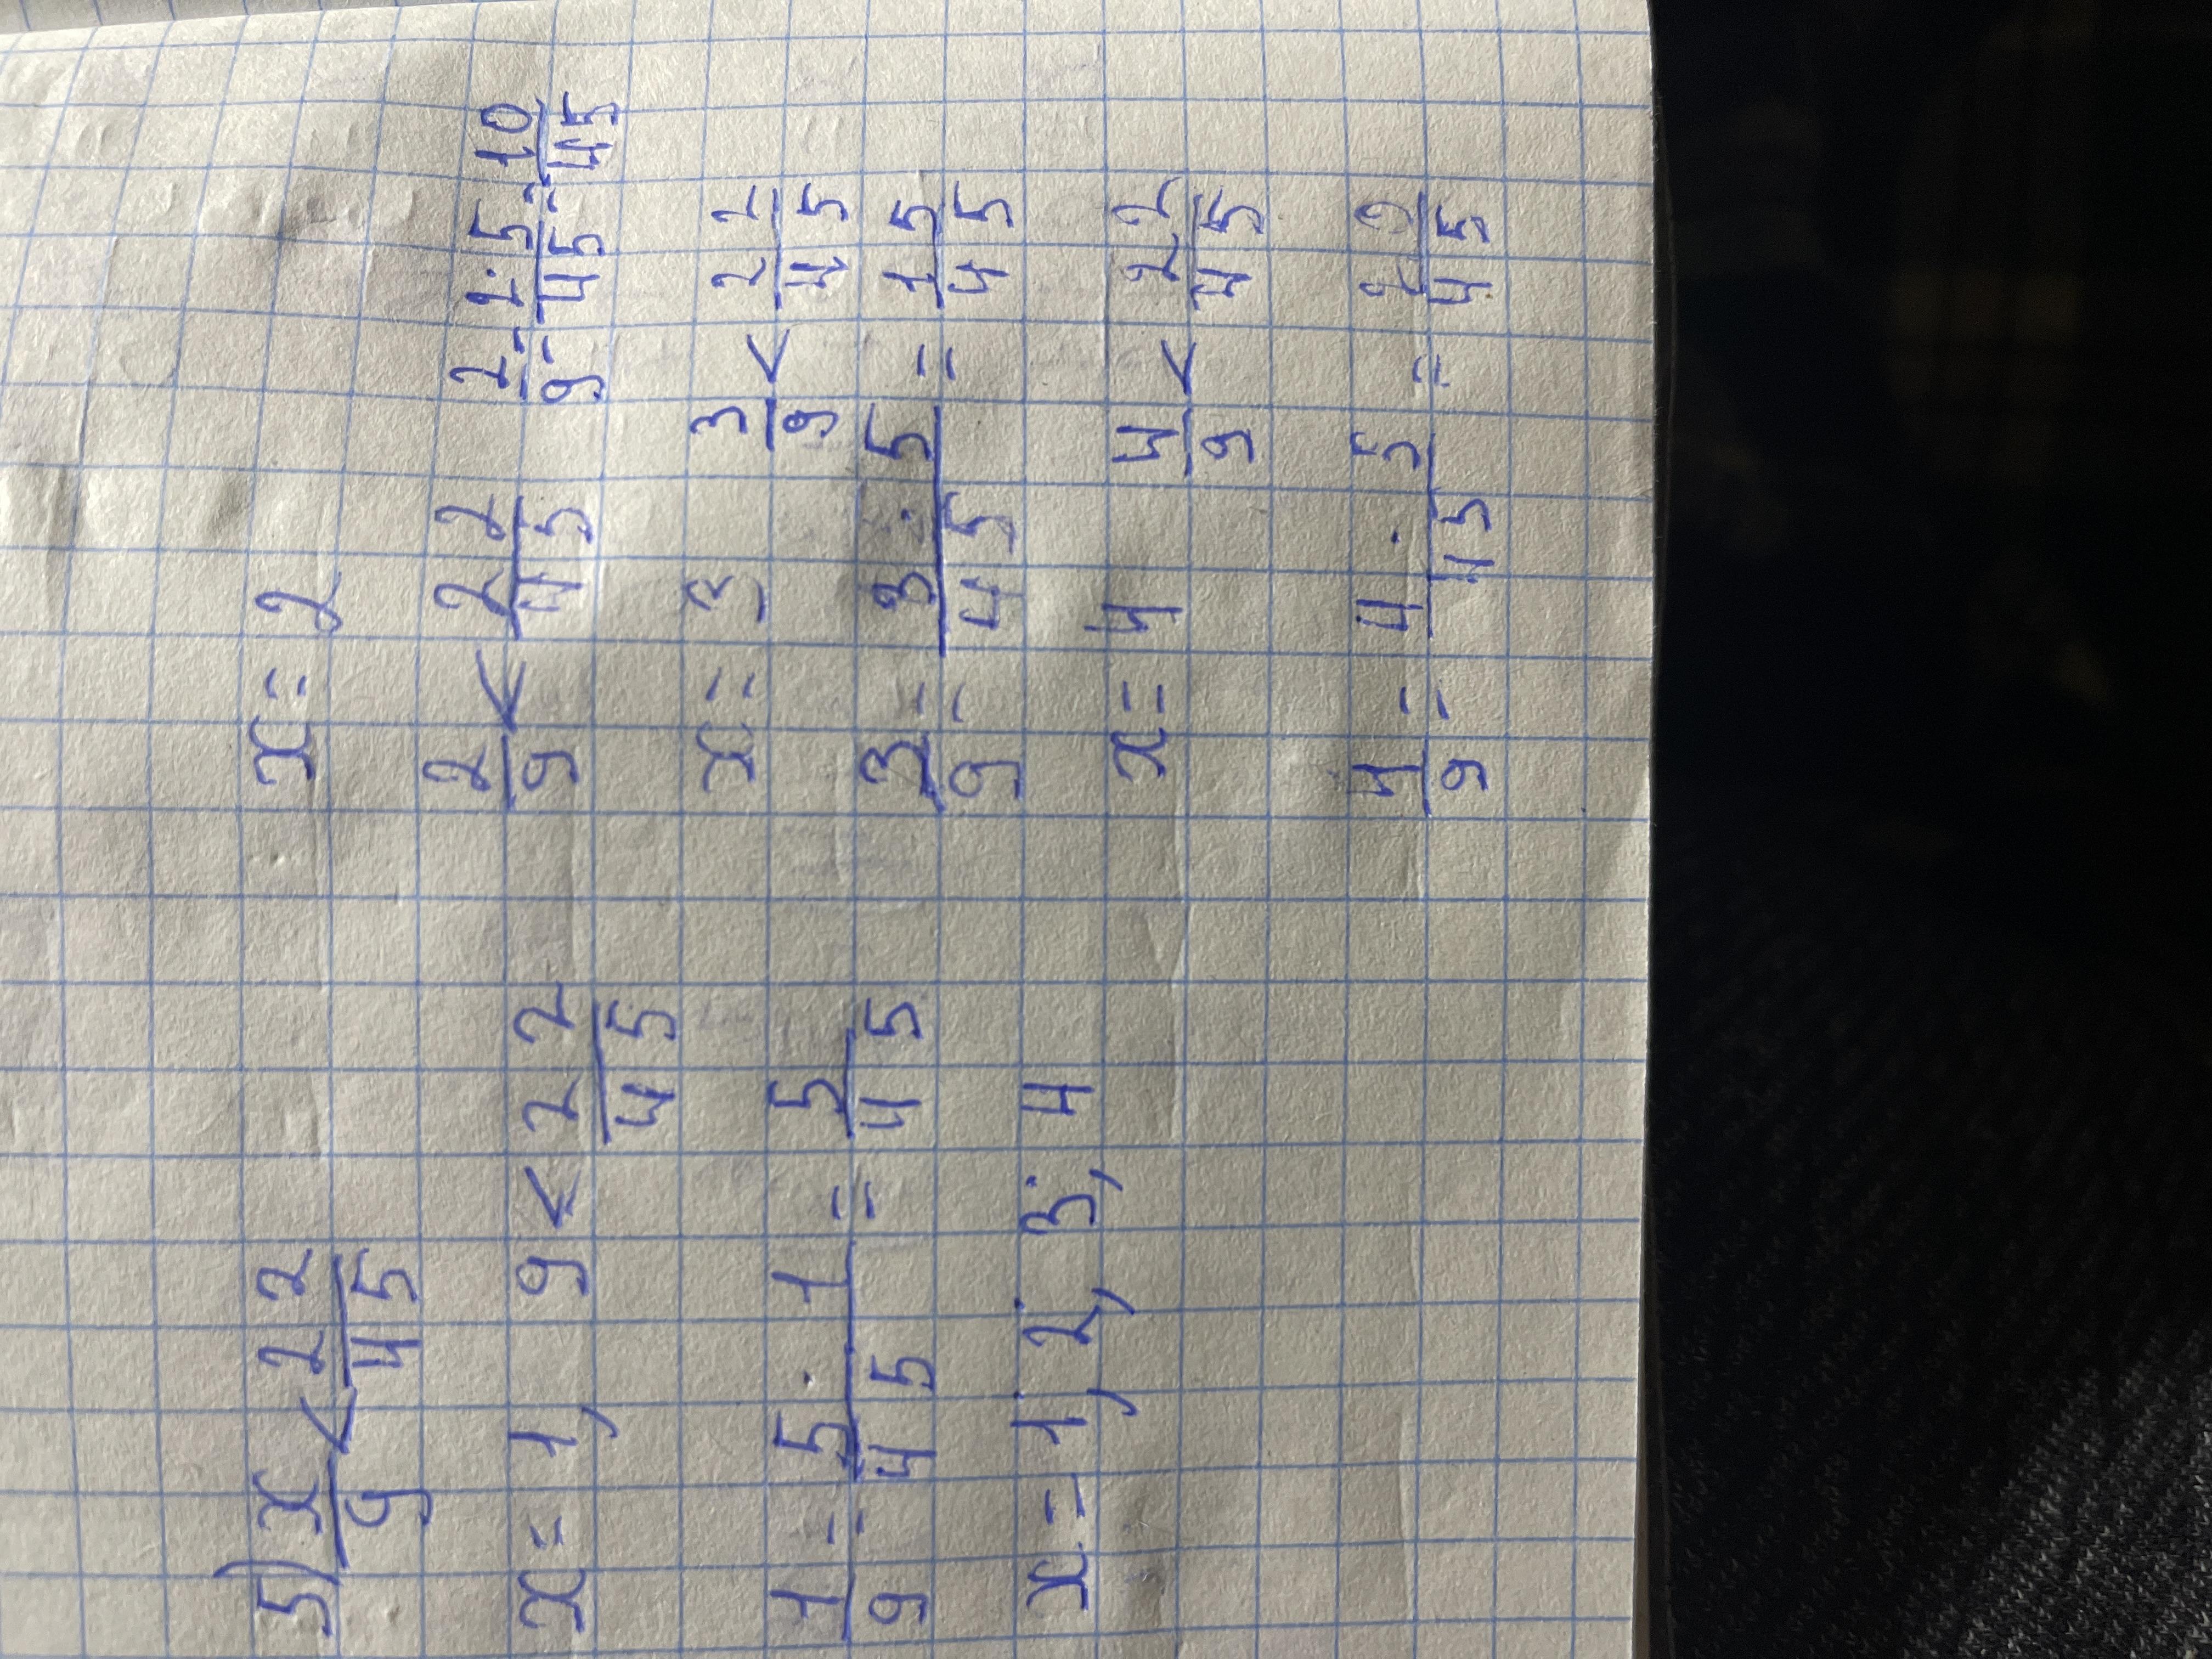 5) x/9 < 22/45
x = 1, 9 < 22/45
1/9 = 5·1/45 = 5/45
x = 1; 2; 3; 4
x = 2
2/9 < 22/45 2/9 = 2·5/45 = 10/45
x = 3 3/9 < 22/45
3/9 = 3·5/45 = 15/45
x = 4 4/9 < 22/45
4/9 = 4·5/45 = 20/45